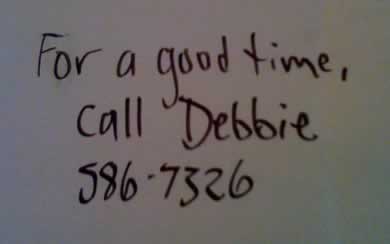 For a good time,
call Debbie
586-7326